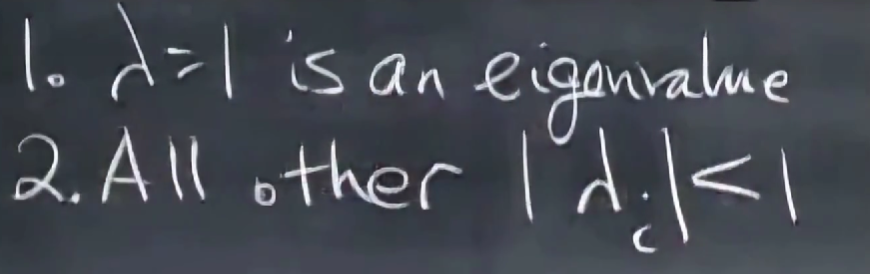 1. λ=1 is an eigenvalue
2. All other |λi|<1